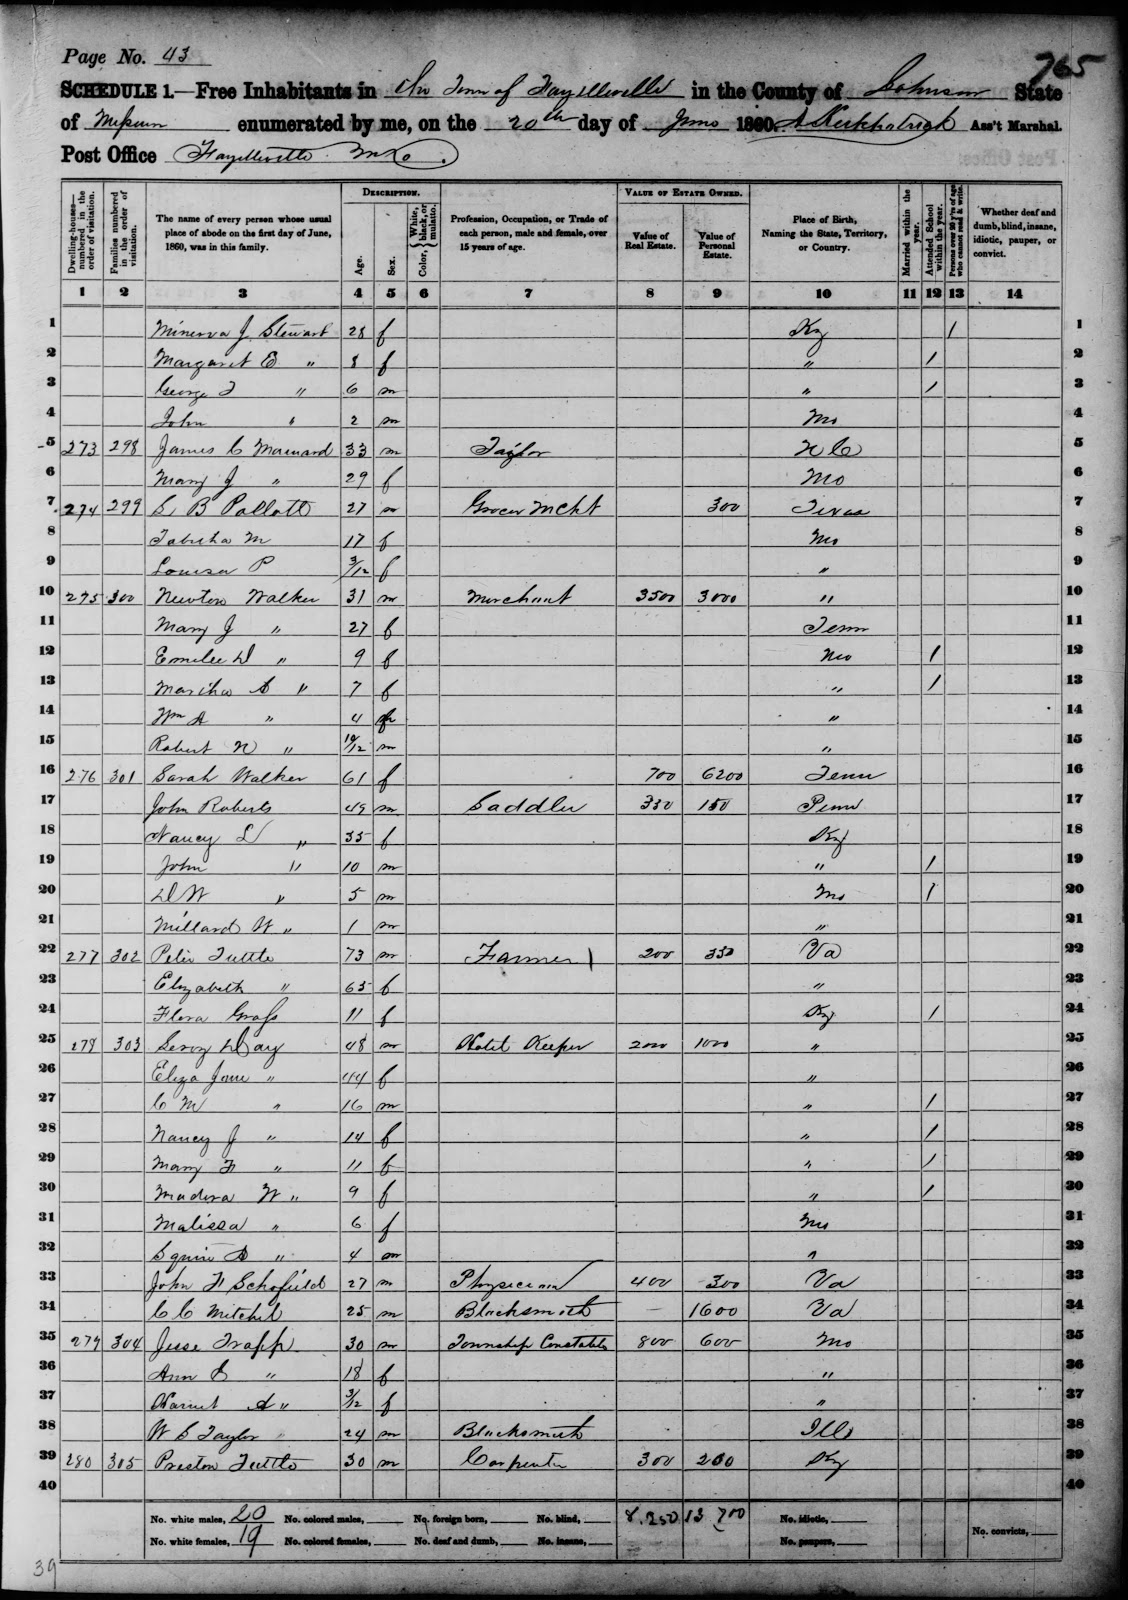 Page No. 43
765
SCHEDULE 1.—Free Inhabitants in the Town of Fayetteville in the County of Johnson State
of Missouri enumerated by me, on the 20th day of June 1860. Kirkpatrick Ass't Marshal.
Post Office Fayetteville Mo.
Dwelling-houses—numbered in the order of visitation.
Families numbered in the order of visitation.
The name of every person whose usual place of abode on the first day of June, 1860, was in this family.
DESCRIPTION.
Age.
Sex.
Color, White, black, or mulatto.
Profession, Occupation, or Trade of each person, male and female, over 15 years of age.
VALUE OF ESTATE OWNED.
Value of Real Estate.
Value of Personal Estate.
Place of Birth, Naming the State, Territory, or Country.
Married within the year.
Attended School within the year.
Persons over 20 y'rs of age who cannot read & write.
Whether deaf and dumb, blind, insane, idiotic, pauper, or convict.
1 2 3 4 5 6 7 8 9 10 11 12 13 14
1 Minerva J Stewart 28 f Ky / 1
2 Margaret E " 8 f " / 2
3 George T " 6 m " / 3
4 John " 2 m Mo 4
5 273 298 James C 33 m Taylor N C 5
6 Mary J " 29 f Mo 6
7 274 299 S B 27 m Grocer Mcht 300 Texas 7
8 Tabitha M 17 f Mo 8
9 Louisa P 3/12 f " 9
10 275 300 Newton Walker 31 m Merchant 3500 3000 " 10
11 Mary J " 27 f Tenn 11
12 Emilee D " 9 f Mo / 12
13 Martha A " 7 f " / 13
14 Wm A " 4 " 14
15 Robert N " 10/12 m " 15
16 276 301 Sarah Walker 61 f 700 6200 Tenn 16
17 John Roberts 49 m Saddler 350 150 Penn 17
18 Nancy L " 35 f Ky 18
19 John " 10 m " / 19
20 D W " 5 m Mo / 20
21 Millard W " 1 m " 21
22 277 302 Peter Tuttle 73 m Farmer / 200 350 Va 22
23 Elizabeth " 65 f " 23
24 Flora Grass 11 f Ky / 24
25 278 303 Leroy Day 48 m Hotel Keeper 2000 1000 " 25
26 Eliza Jane " 44 f " 26
27 C M " 16 m " / 27
28 Nancy J " 14 f " / 28
29 Mary F " 11 f " / 29
30 Madora W " 9 f " / 30
31 Malissa " 6 f Mo 31
32 Squire A " 4 m " 32
33 John F Schofield 27 m Physician 400 300 Va 33
34 C C Mitchel 25 m Blacksmith — 1600 Va 34
35 279 304 Jesse Trapp 30 m Township Constable 800 600 Mo 35
36 Ann S " 18 f " 36
37 Harriet A " 3/12 f " 37
38 W S Taylor 24 m Blacksmith Ills 38
39 280 305 Preston Tuttle 30 m Carpenter 300 200 Ky 39
40 40
No. white males, 20 No. colored males, No. foreign born, No. blind, 8,250 13 700 No. idiotic,
No. white females, 19 No. colored females, No. deaf and dumb, No. insane, No. paupers, No. convicts,
39